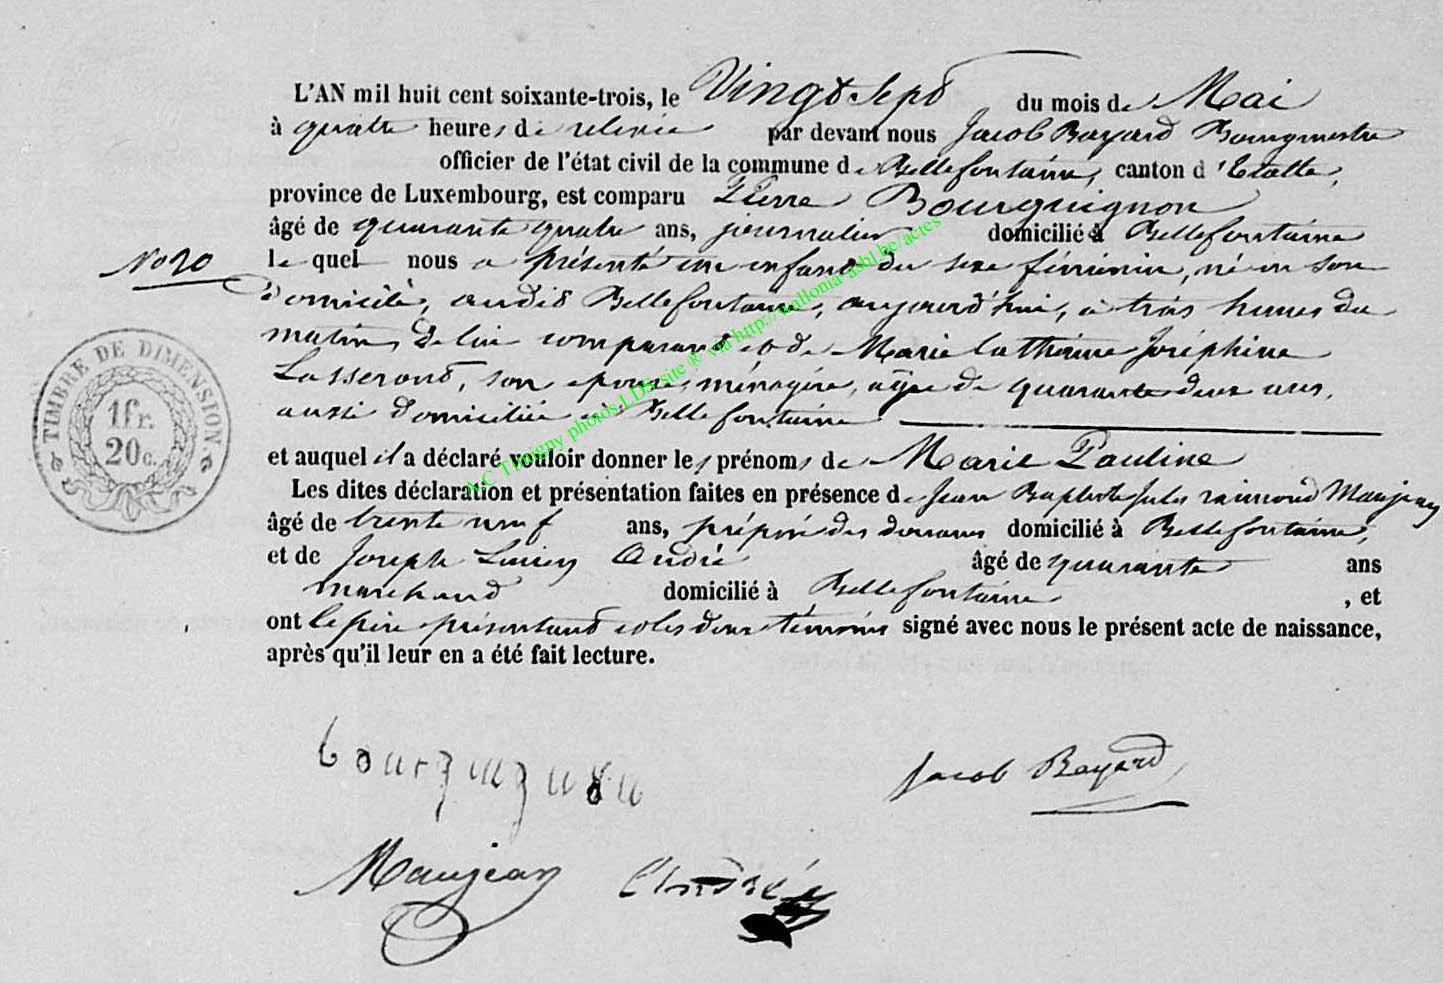 L'AN mil huit cent soixante-trois, le Vingt Sept du mois de Mai
à quatre heures de relevée par devant nous Jacob Bayard Bourgmestre
officier de l'état civil de la commune de Bellefontaine, canton d'Etalle,
province de Luxembourg, est comparu Pierre Bourguignon
âgé de quarante quatre ans, journalier domicilié à Bellefontaine
No 20
lequel nous a présenté un enfant du sexe féminin, né en son
domicile, audit Bellefontaine, aujourd'hui, à trois heures du
matin, de lui comparant et de Marie Catherine Joséphine
Lasserond, son epouse, ménagère, agée de quarante deux ans,
aussi domiciliée à Bellefontaine
et auquel il a déclaré vouloir donner les prénoms de Marie Pauline
Les dites déclaration et présentation faites en présence de Jean Baptiste Jules raimond Maujean
âgé de trente neuf ans, préposé des douanes domicilié à Bellefontaine,
et de Joseph Lucien André âgé de quarante ans
marchand domicilié à Bellefontaine, et
ont le père présentant et les deux témoins signé avec nous le présent acte de naissance,
après qu'il leur en a été fait lecture.
TIMBRE DE DIMENSION
1fr.
20c.
A.C Tintigny photos LDS site ® via http://wallonia-asbl.be/actes
Jacob Bayard
Maujean André